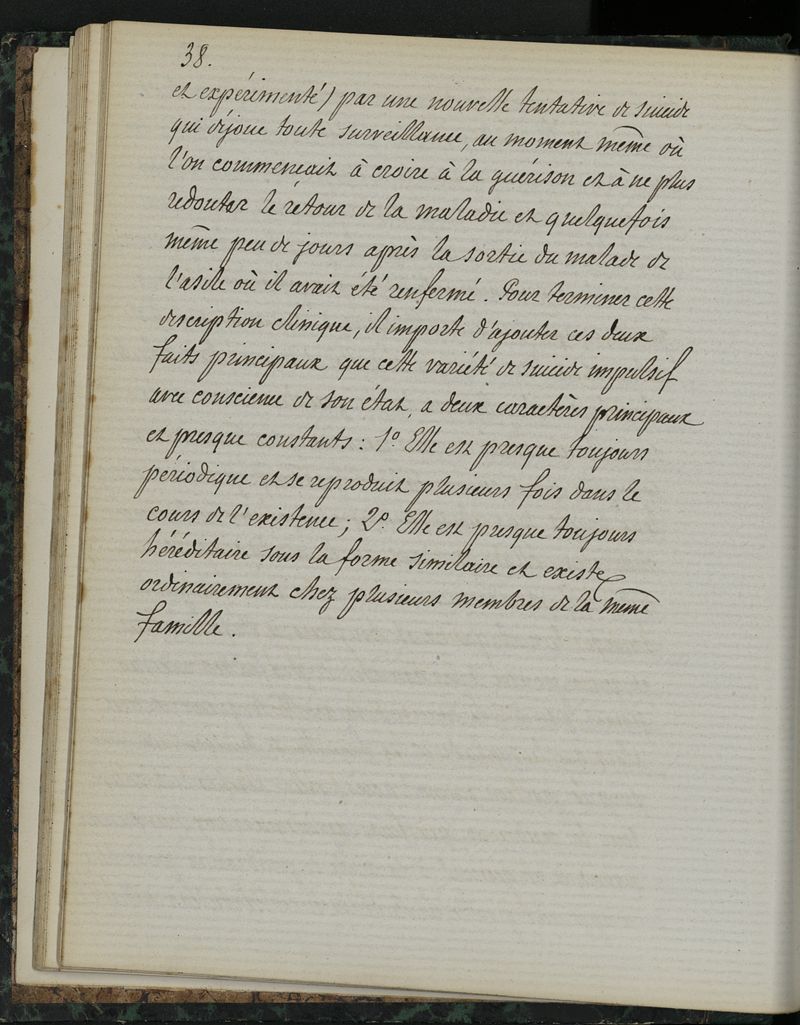 38.
et expérimenté) par une nouvelle tentative de suicide
qui déjoue toute surveillance, au moment même où
l'on commencait à croire à la guérison et à ne plus
redouter le retour de la maladie et quelquefois
même peu de jours après la sortie du malade de
l'asile où il avait été renfermé. Pour terminer cette
description clinique, il importe d'ajouter ces deux
faits principaux que cette variété de suicide impulsif
avec conscience de son état, a deux caractères principaux
et presque constants : 1º. Elle est presque toujours
périodique et se reproduit plusieurs fois dans le
cours de l'existence ; 2º. Elle est presque toujours
héréditaire sous la forme similaire et existe
ordinairement chez plusieurs membres de la même
famille.